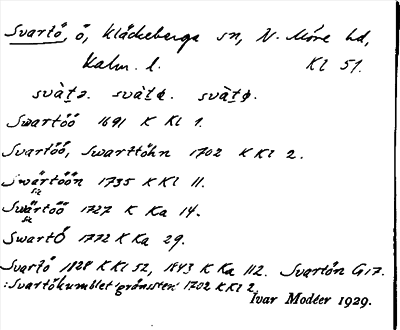 Svartö, ö, Kläckeberga sn, N. Möre hd,
Kalm. l. Kl 51.
svàt̠ə. svàt̠ø. svàt̠ø.
Swartöö 1691 K Kl 1.
Svartöö, Swarttöhn 1702 K Kl 2.
Swärtöön 1735 K Kl 11.
sic
Swärtöö 1727 K Ka 14.
sic
Swartö 1772 K Ka 29.
Svartö 1828 K Kl 52, 1843 K Ka 112. Svartön G 17.
:Svartökumblet 'gränssten' 1702 K Kl 2
Ivar Modéer 1929.